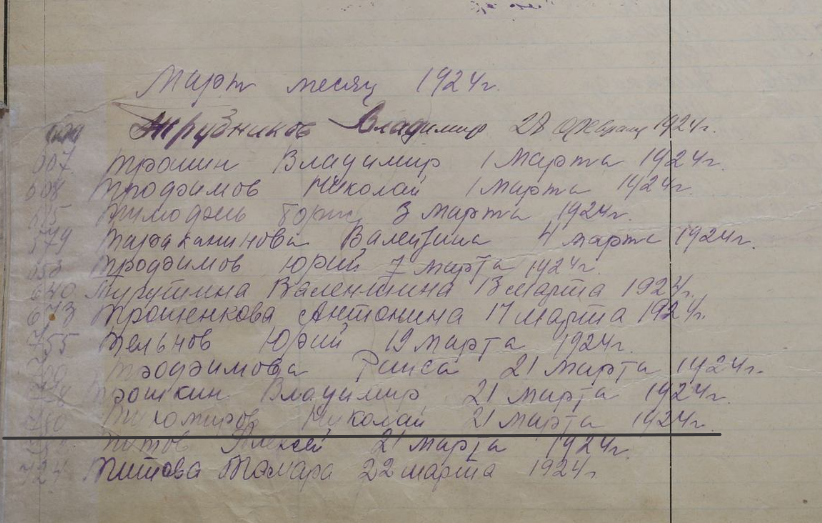 Март месяц 1924 г.
Трубников Владимир 28 февраля 1924 г.
607 Трошин Владимир 1 Марта 1924 г.
608 Трофимов Николай 1 Марта 1924 г.
Тимофеь Борис 3 марта 1924 г.
579 Тараканинова Валентина 4 марта 1924 г.
653 Трофимов Юрий 7 Марта 1924 г.
Турутина Валентина 13 марта 1924 г.
673 Трошенкова Антонина 17 марта 1924 г.
Тельнов Юрий 19 Марта 1924 г.
Трофимова Раиса 21 Марта 1924 г.
Трошкин Владимир 21 Марта 1924 г.
Тихомиров Николай 21 Марта 1924 г.
Титов Алексей 21 Марта 1924 г.
Титова Тамара 22 марта 1924 г.